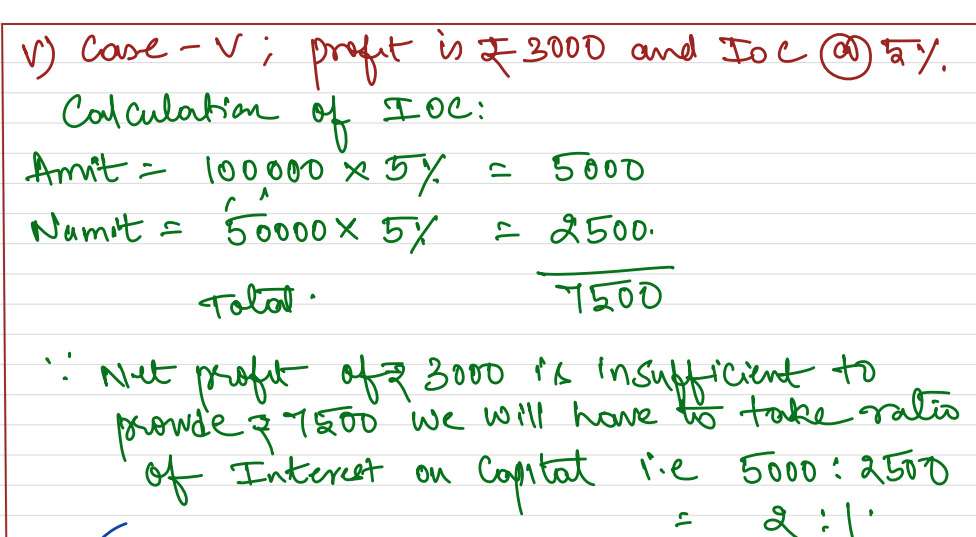 V) Case - V ; profit is ₹ 3000 and IOC @ 5%.
Calculation of IOC:
Amit = 100000 × 5% = 5000
Namit = 50000 × 5% = 2500.
Total. 7500
∵ Net profit of ₹ 3000 is insufficient to
provide ₹ 7500 we will have to take ratio
of Interest on Capital i.e 5000 : 2500
= 2 : 1.